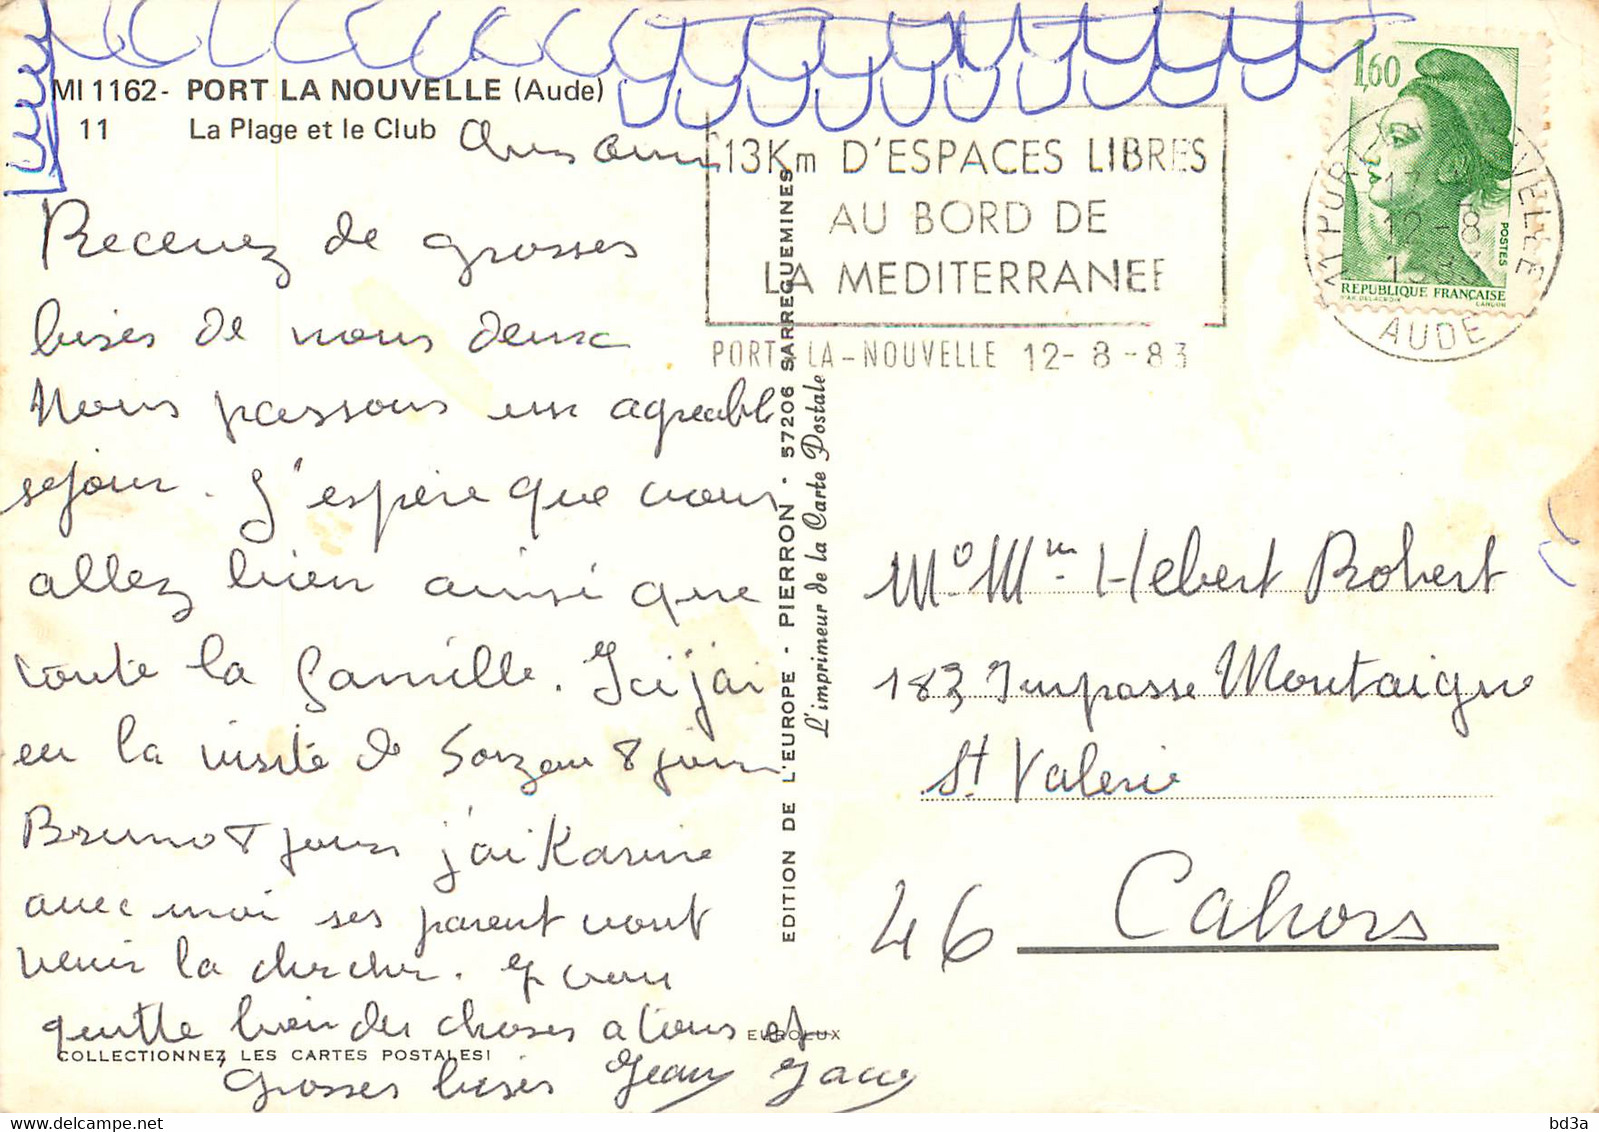 MI 1162- PORT LA NOUVELLE (Aude)
11 La Plage et le Club
Recevez de grosses
bises de nous deux
Nous passons un agreable
sejour. J'espère que vous
allez bien ainsi que
toute la famille. Ici j'ai
eu la visite de 8 jours
Bruno 8 jours j'ai Karine
avec moi ses parent vont
venir la chercher. Je vous
quitte bien des choses a tous et
Grosses bises Jean
COLLECTIONNEZ LES CARTES POSTALES!
EUROLUX
EDITION DE L'EUROPE - PIERRON - 57206 SARREGUEMINES
L'imprimeur de la Carte Postale
13Km D'ESPACES LIBRES
AU BORD DE
LA MEDITERRANEE
PORT LA-NOUVELLE 12-8-83
1,60
POSTES
REPUBLIQUE FRANÇAISE
D'AP. DELACROIX GANDON
12-8
AUDE
Mº Mme Hebert Robert
183 Impasse Montaigne
St Valerie
46 Cahors
delcampe.net
bd3a